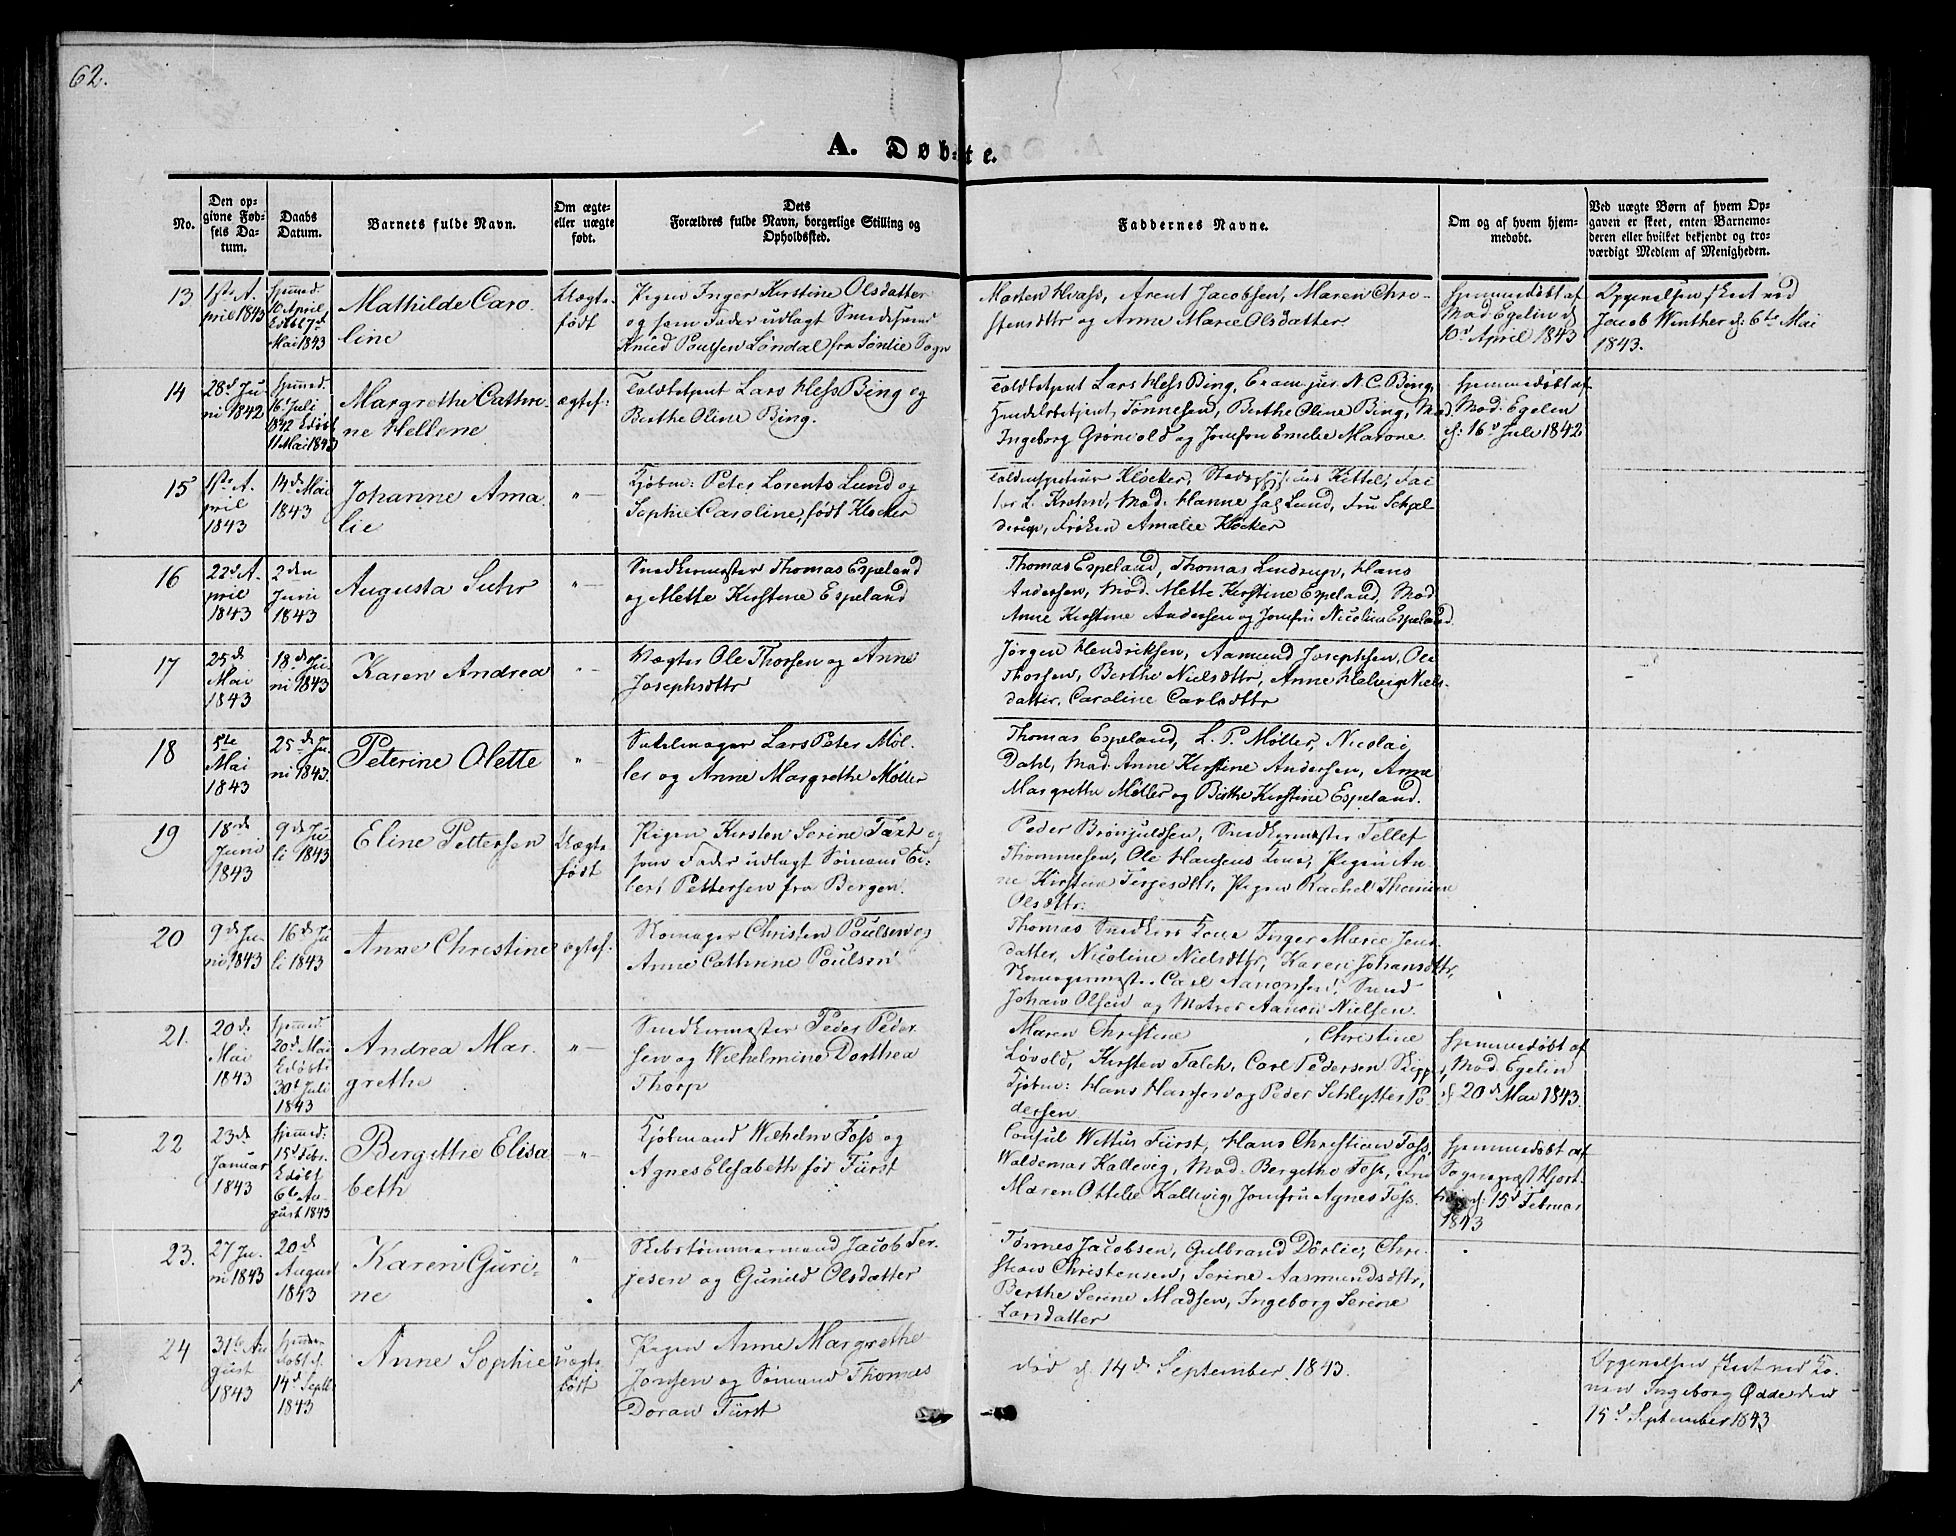 62.
A. Døbte.
No.
Den op-
givne Fød-
sels Da-
tum.
Daabs
Datum.
Barnets fulde Navn.
Om ægte
eller uægte
født.
Dets
Forældres fulde Navn, borgerlige Stilling og
Opholdssted.
Faddernes Navne.
Om og af hvem hjem-
medøbt.
Ved uægte Børn af hvem Op-
gaven er skeet, enten Barnemo-
deren eller hvilket bekjendt og tro-
værdigt Medlem af Menigheden.
13
1ste A-
pril 1843
hjemmed.
10 April
Edøbt 7d
Mai 1843
Mathilde Caro
line
Uægte
født
Pigen Inger Kirstine Olsdatter
og som Fader udlagt Smedesvend
Knud Poulsen Løndal fra Søndle Sogn
Morten Hvass, Arent Jacobsen, Maren Chri-
stensdttr og Anne Marie Olsdatter.
Hjemmedøbt af
Mad. Egelin d
10d April 1843
Opgivelsen skeet ved
Jacob Winther d: 6te Mai
1843.
14
28d Ju
ni 1842
hjemmed.
16 Juli
1842 Edøbt
11 Mai 1843
Margrethe Cathri-
ne Hellene
ægtef-
Toldbetjent Lars Hess Bing og
Berthe Oline Bing.
Toldbetjent Lars Hess Bing, Exam. jur. N. C. Bing,
Handelsbetjent Tönnesen, Berthe Oline Bing, Mad.
Ingeborg Grönvold og Jomfru Emelie Marone.
Hjemmedøbt af
Mad. Egelin
d: 16d Juli 1842
15
1ste A-
pril
1843
14d Mai
1843
Johanne Ama
lie
"
Kjøbm: Peter Lorents Lund og
Sophie Caroline, født Kløcker
Toldinspecteur Kløcker, Stadsphysicus Kittel,
L. Krohn, Mad. Hanne Lund, Fru Schjel-
derup, Frøken Amalie Kløcker
16
22d A-
pril
1843
2den
Juni
1843
Augusta Suhr
"
Snedkermester Thomas Espeland
og Mette Kirstine Espeland
Thomas Espeland, Thomas Lindrup, Hans
Andersen, Mad. Mette Kirstine Espeland, Mad
Anne Kirstine Andersen og Jomfru Nicoline Espeland.
17
25d
Mai
1843
18d Ju
ni 1843
Karen Andrea
"
Vægter Ole Thorsen og Anne
Josephsdttr
Jørgen Hendriksen, Aamund Josephsen, Ole
Thorsen, Berthe Nielsdttr, Anne Helvig Niels-
datter, Caroline Carlsdttr
18
5te
Mai
1843
25d Ju
ni 1843.
Peterine Olette
"
Sadelmager Lars Peter Møl-
ler og Anne Margrethe Møller
Thomas Espeland, L. P. Møller, Nicolai
Dahl, Mad. Anne Kirstine Andersen, Anne
Margrethe Møller og Birthe Kirstine Espeland.
19
18de
Juni
1843
9d Ju
li 1843
Eline Pettersen
Uægte
født
Pigen Kirsten Serine Taxt og
som Fader udlagt Sømand Ei-
lert Pettersen fra Bergen.
Peder Brönjuldsen, Snedkermester Tellef
Thommesen, Ole Hansens Kone, Pigen An-
ne Kirstine Terjesdttr, Pigen Rachel Thomine
Olsdttr.
20
9d Ju-
ni 1843
16d Ju
li 1843
Anne Christine
ægtef-
Skomager Christen Poulsen og
Anne Cathrine Poulsen
Thomas Snedkers Kone Inger Marie Jens
datter, Nicoline Nielsdttr, Karen Johansdttr,
Skomagermester Carl Aanonsen,
Johan Olsen og Matros Aanon Nielsen.
21.
20de
Mai
1843
hjemmed
20d Mai
Edøbt
30d Juli
1843
Andrea Mar-
grethe
"
Snedkermester Peder Peder
sen og Wilhelmine Dorthea
Thorp
Maren Christine , Christine
Løvold, Kirsten Falch, Carl Pedersen Skipp,
Kjøbm: Hans Hansen og Peder Schlytter Pe
dersen
Hjemmedøbt af
Mad. Egelin
d 20d Mai 1843.
22
23de
Januar
1843
hjemmed:
15d Febr.
Edøbt
6te Au-
gust 1843
Bergithe Elisa
beth
"
Kjøbmand Wilhelm Foss og
Agnes Elisabeth fød Fürst
Consul Wettus Fürst, Hans Christian Foss,
Waldemar Kallevig, Mad. Bergithe Foss, Fru
Maren Ottelie Kallevig, Jomfru Agnes Foss.
Hjemmedøbt af
Sognepræst Hjort-
d: 15d Februar
1843
23.
27 Ju-
ni 1843
20d
August
1843
Karen Guri-
ne
"
Skibstømmermand Jacob Ter-
jesen og Gunild Olsdatter
Tønnes Jacobsen, Gulbrand Dörlie, Chri-
stian Christensen, Serine Aasmundsdttr,
Berthe Serine Madsen, Ingeborg Serine
Larsdatter
24
31te Au
gust
1843
hjemme-
døbt d.
14d Septb
1843
Anne Sophie
uægte
født
Pigen Anne Margrethe
Jonsen og Sømand Thomas
Doran Fürst
død d. 14de September 1843.
Opgivelsen skeet ved Ko-
nen Ingeborg Ødde den
15d September 1843.